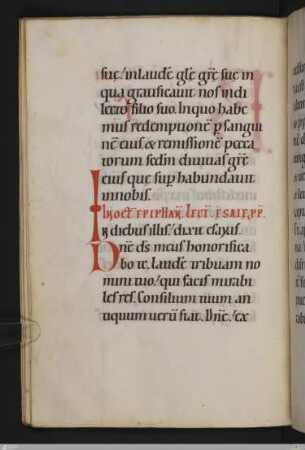 suę. in laudē glę grę sue in
qua gratificauit nos in di
lecto filio suo. In quo habe
mus redemptionē p sangui
nē eius & remissionē pecca
torum sedm diuitias grę
eius que sup habundauit
in nobis.
IN OCT EPIPHAÑ. LECT. ESAIE PPH.
In diebus illis. dixit esayas.
Dnē ds meus honorifica
bo te. laudē tribuam no
mini tuo. qui facis mirabi
les res. Consilium tuum an
tiquum uerū fiat. Dnē. ex